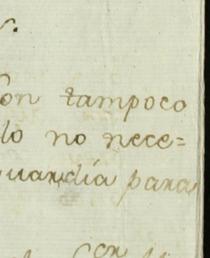 on tampoco
lo no nece=
uardia para